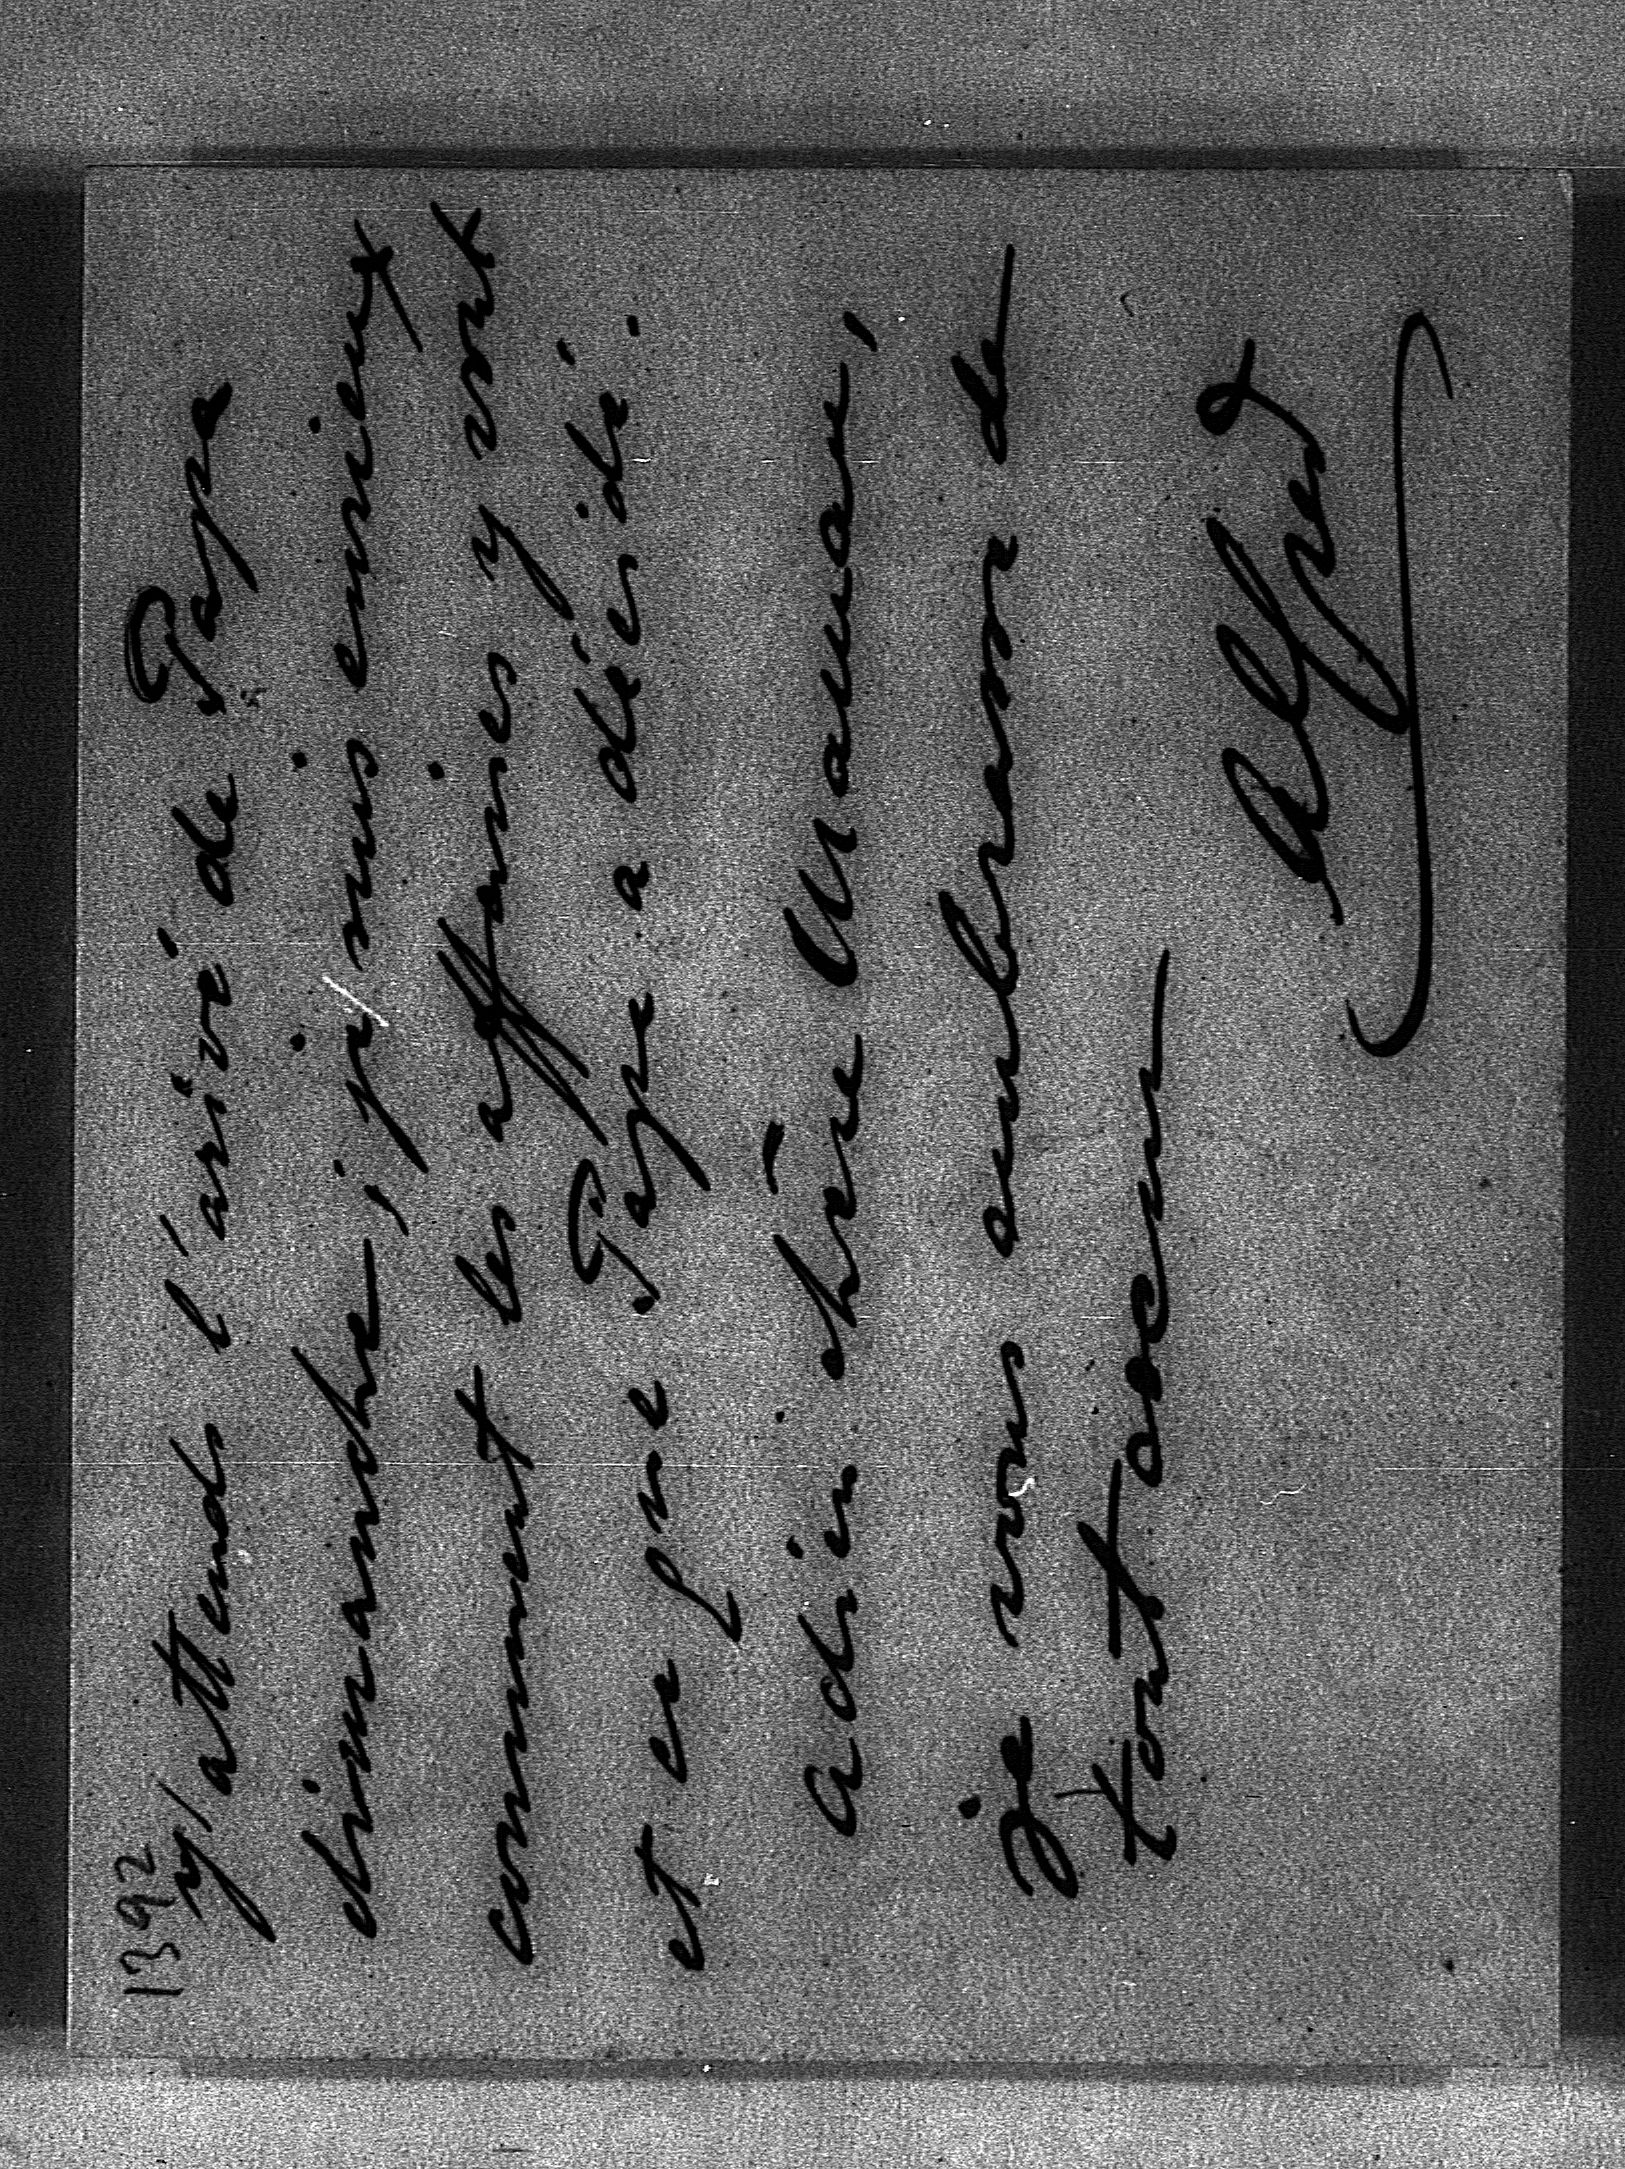 1392
j'attends l'arivé de Papa
dimanche, je suis ennieux
comment les affaires y vont
et ce que Papa a décidé.
adieu chère Maman,
je vous embrasse de
tout coeur
Alfred